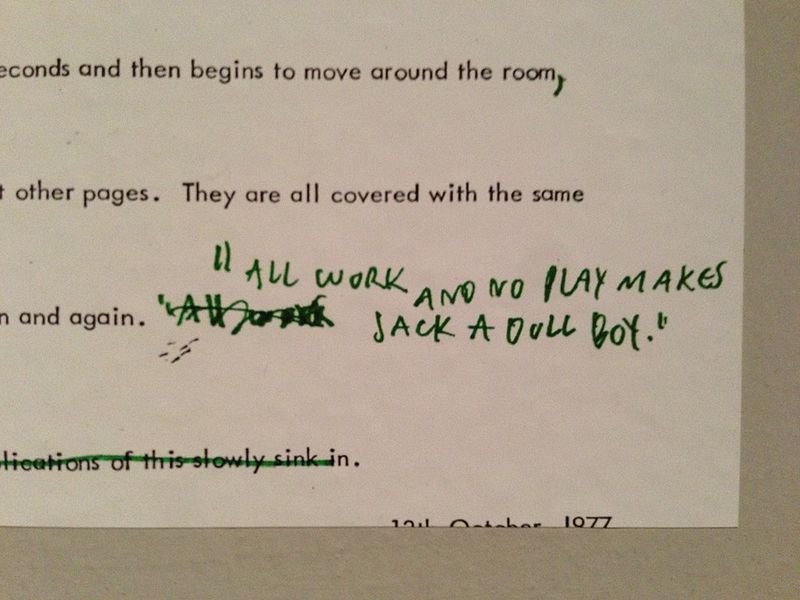 econds and then begins to move around the room,
t other pages. They are all covered with the same
" ALL WORK AND NO PLAY MAKES
n and again. "All work JACK A DULL BOY."
lications of this slowly sink in.
12th October, 1977